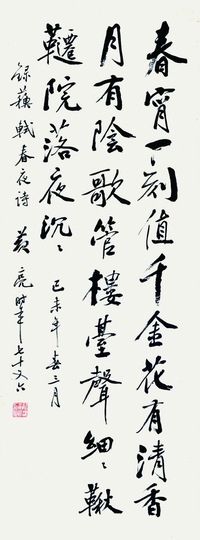 春宵一刻值千金花有清香
月有陰歌管樓臺聲細〻鞦
韆院落夜沉〻 己未年春三月
錄蘇軾春夜詩 黃亮時年七十又六